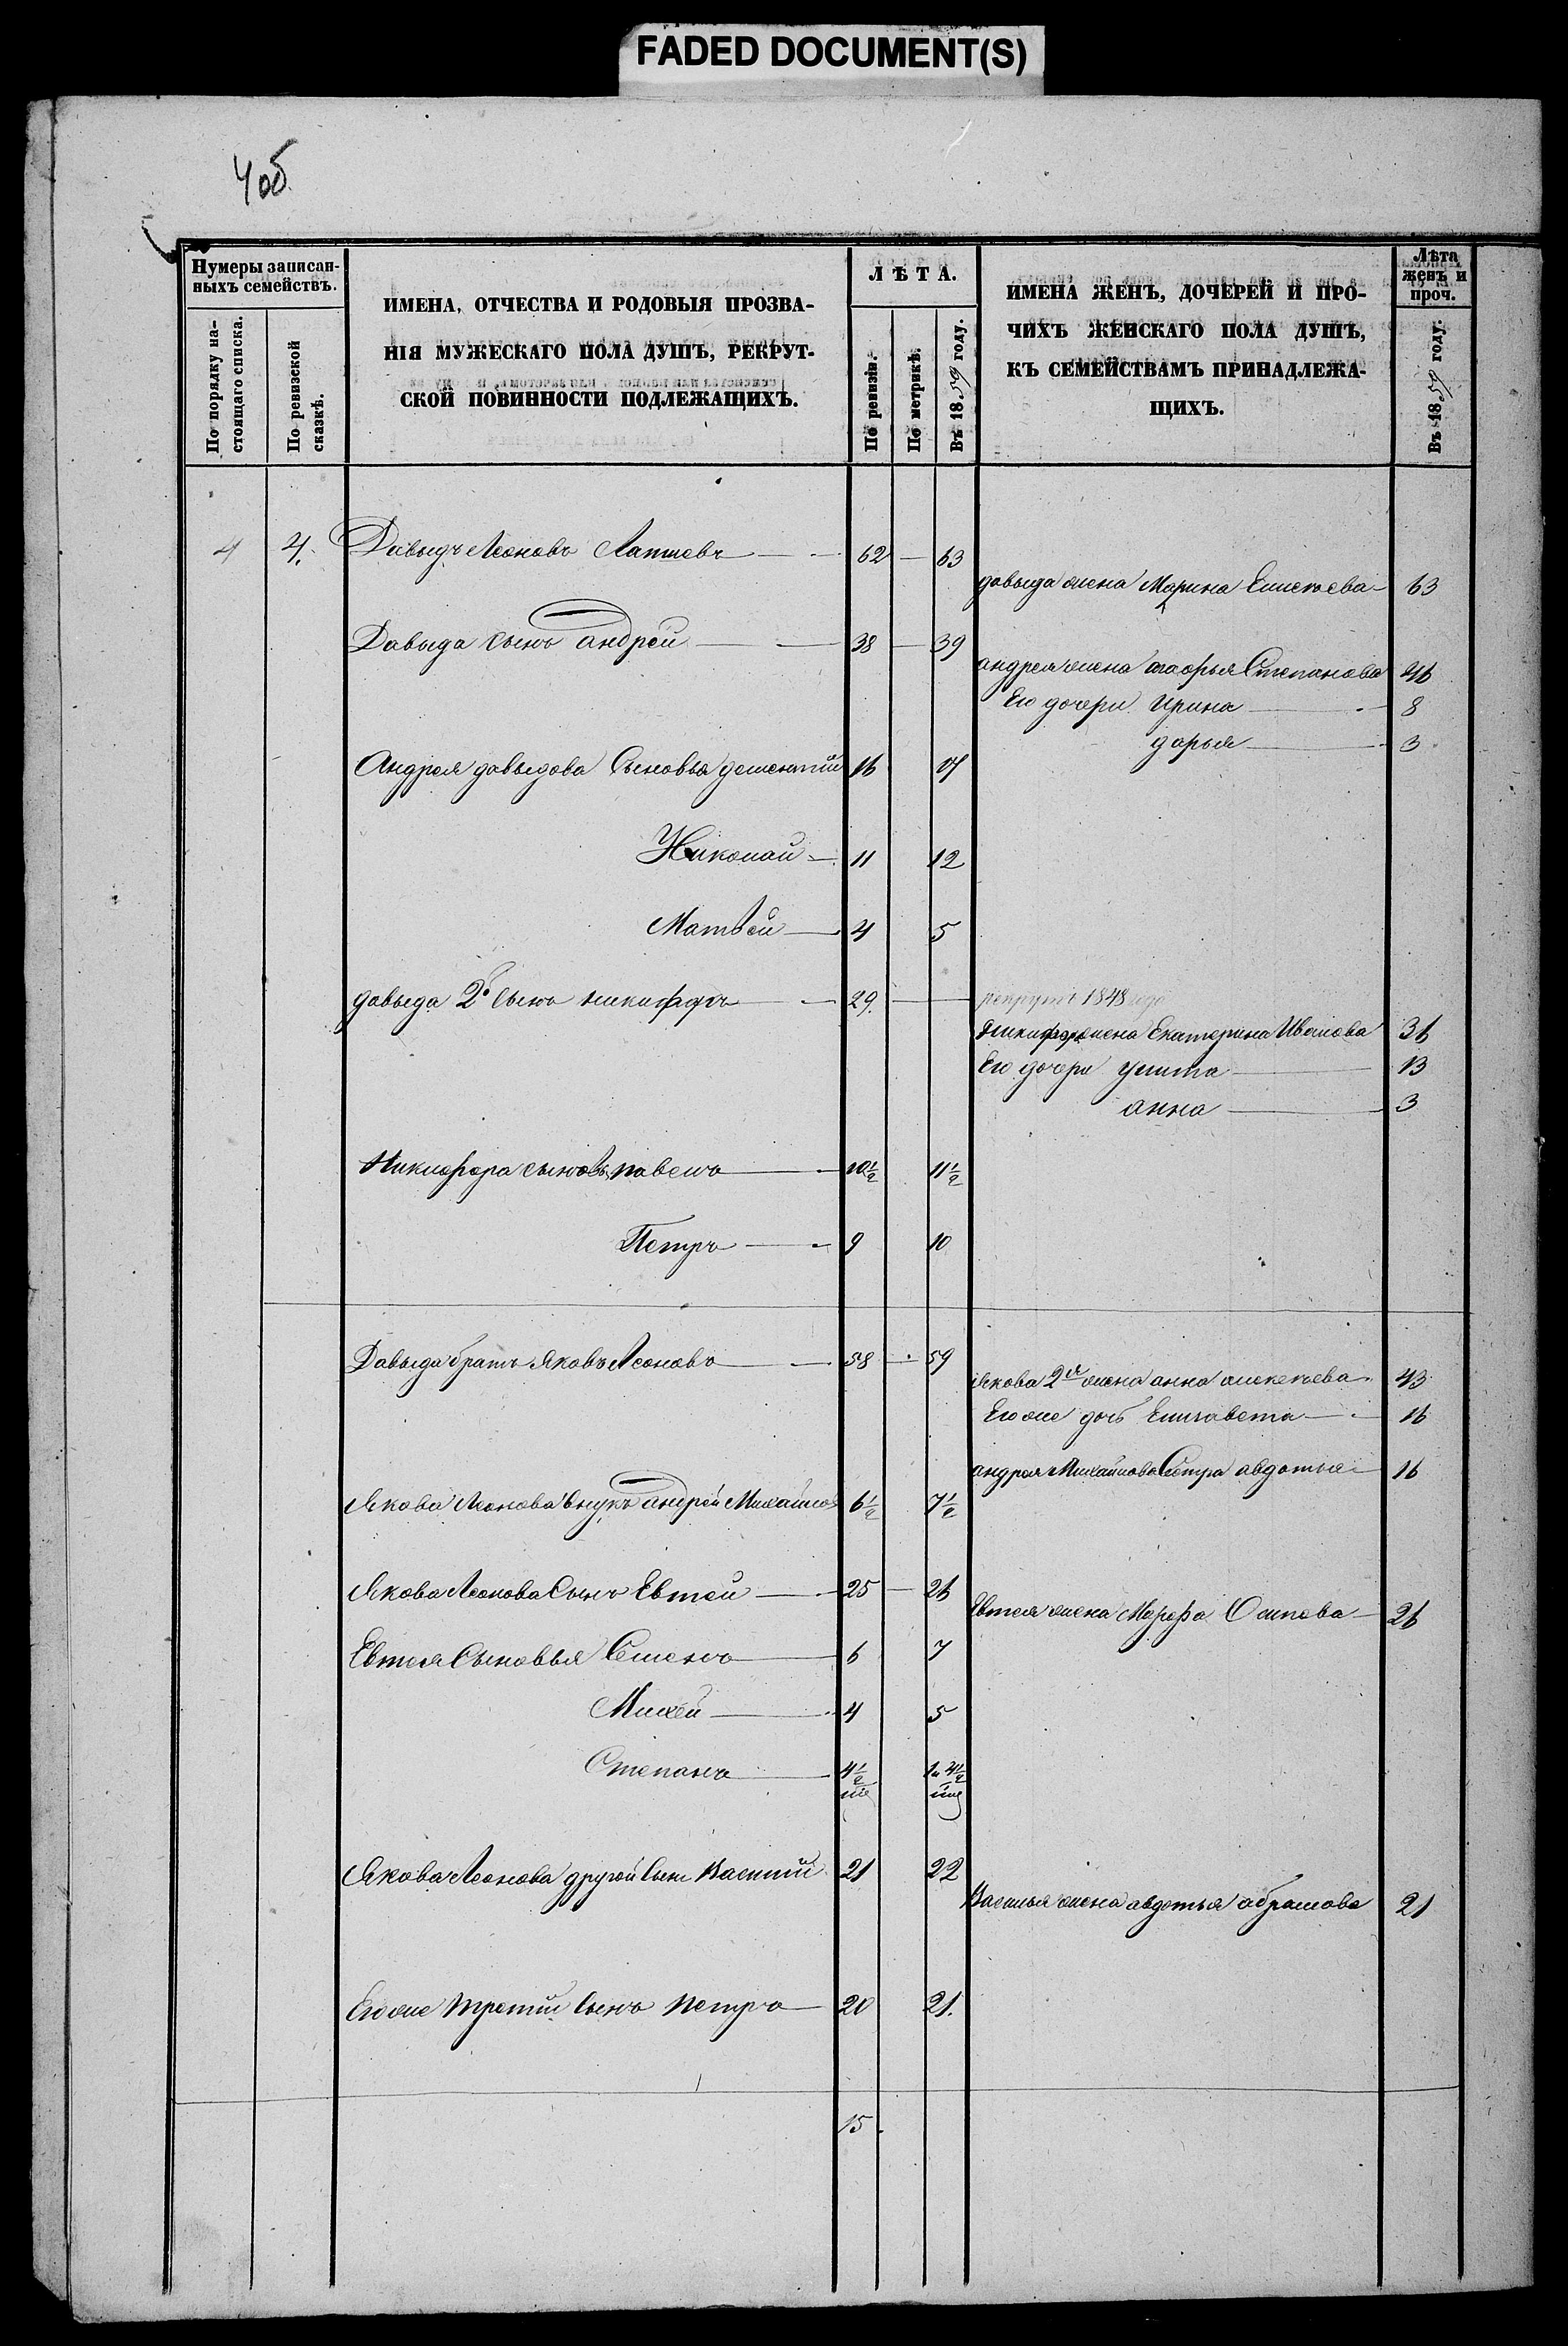 FADED DOCUMENT(S)
4об
Нумеры записан-
ныхъ семействъ.
По порядку на-
стоящаго списка.
По ревизской
сказкѣ.
ИМЕНА, ОТЧЕСТВА И РОДОВЫЯ ПРОЗВА-
НІЯ МУЖЕСКАГО ПОЛА ДУШЪ, РЕКРУТ-
СКОЙ ПОВИННОСТИ ПОДЛЕЖАЩИХЪ.
ЛѢТА.
По ревизіи.
По метрикѣ.
Въ 1859 году.
ИМЕНА ЖЕНЪ, ДОЧЕРЕЙ И ПРО-
ЧИХЪ ЖЕНСКАГО ПОЛА ДУШЪ,
КЪ СЕМЕЙСТВАМЪ ПРИНАДЛЕЖА-
ЩИХЪ.
Лѣта
женъ и
проч.
Въ 1859 году.
4 4. Давыдъ Леоновъ Лапшевъ 62 63
давыда жена Марина Елисеева 63
Давыда сынъ андрей 38 39
андрея жена Степанова 46
Его дочери Ирина 8
дарья 3
Андрея давыдова Сыновья дементий 16 17
Николай 11 12
Матвей 4 5
давыда 2й сынъ никифоръ 29. рекрутъ 1848 года
Никифора жена Екатерина Иванова 36
Его дочери улита 13
анна 3
Никифора сыновья павелъ 10½ 11½
Петръ 9 10
Давыда братъ Яковъ Леоновъ 58 59
Якова 2я жена анна алексеева 43
Его же дочь Елизавета 16
андрея Михайлова Сестра авдотья 16
Якова Леонова внукъ андрей Михайлов 6½ 7½
Якова Леонова Сынъ Евтей 25 26
Евтея жена Марфа Осипова 26
Евтея Сыновья Семенъ 6 7
Михей 4 5
Степанъ 4½ 1 и 4½
Якова Леонова другой Сынъ Василий 21 22
Василья жена авдотья абрамова 21
Его же третий Сынъ петръ 20 21.
15.